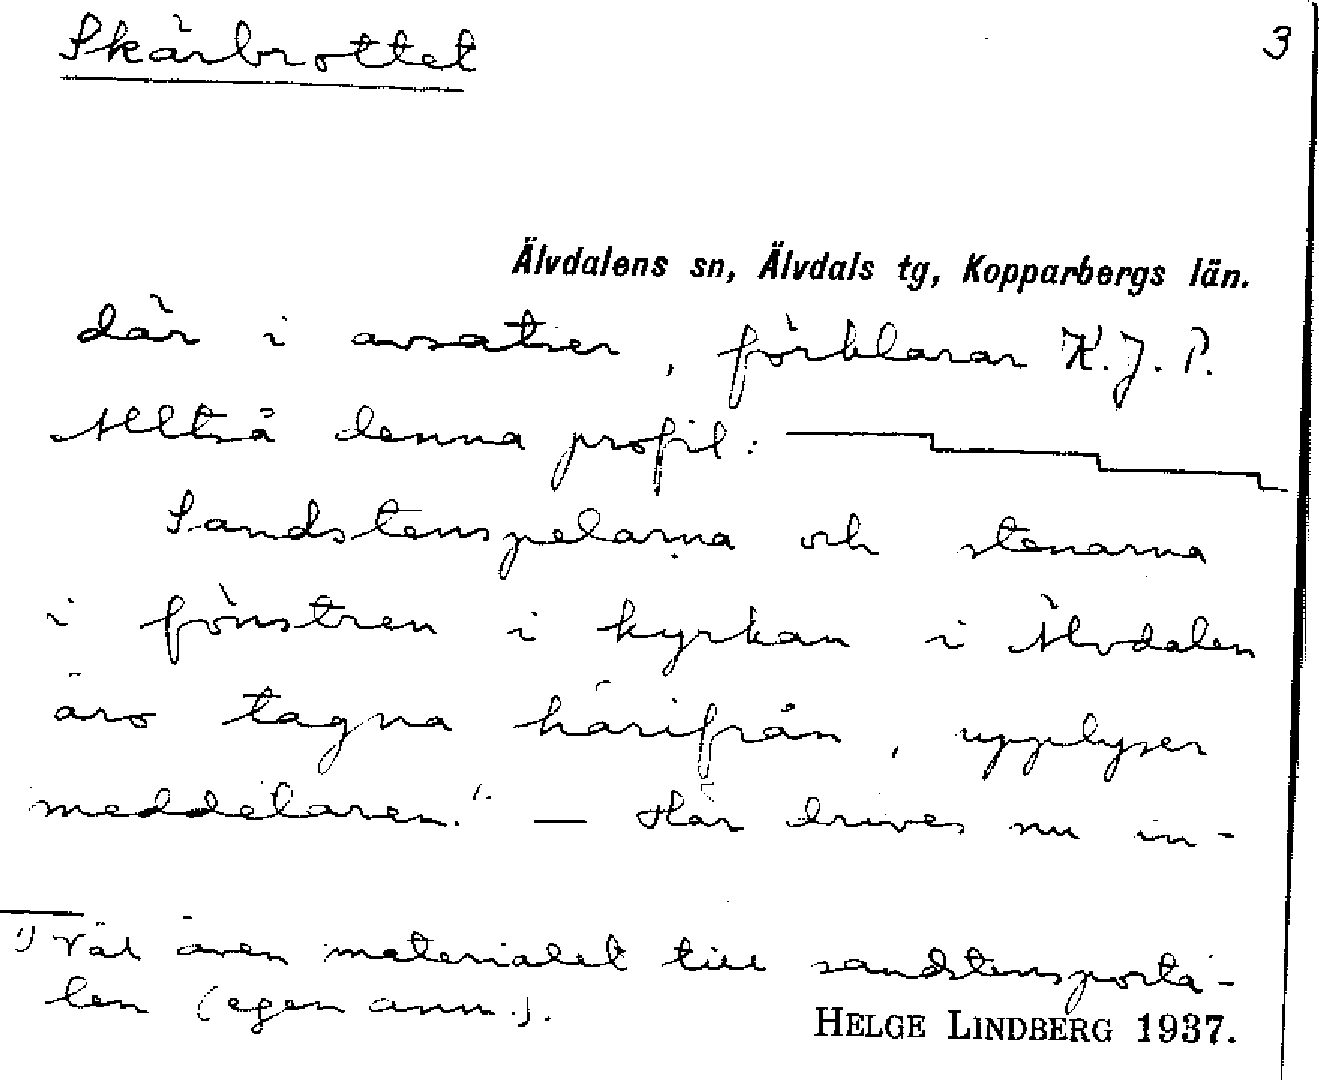 Skärbrottet
3
Älvdalens sn, Älvdals tg, Kopparbergs län.
där i avsatser, förklarar K.J.P.
Alltså denna profil:
Sandstenspelarna och stenarna
i fönstren i kyrkan i Älvdalen
äro tagna härifrån, upplyser
meddelaren.¹⁾ — Här drives nu in-
¹⁾ Väl även materialet till sandstensporta-
len (egen anm.).
HELGE LINDBERG 1937.